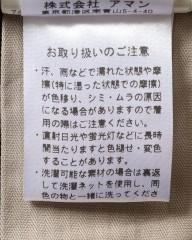 株式会社 アマン
東京都港区南青山5-4-40
お取り扱いのご注意
・汗、雨などで濡れた状態や摩
擦(特に湿った状態での摩擦)
が色移り、シミ・ムラの原因
になる場合がありますので着
用の際はご注意ください。
・直射日光や蛍光灯などに長時
間当たりますと色褪せ・変色
することがあります。
・洗濯可能な素材の場合は裏返
して洗濯ネットを使用し、同
色の物と一緒に洗ってくださ